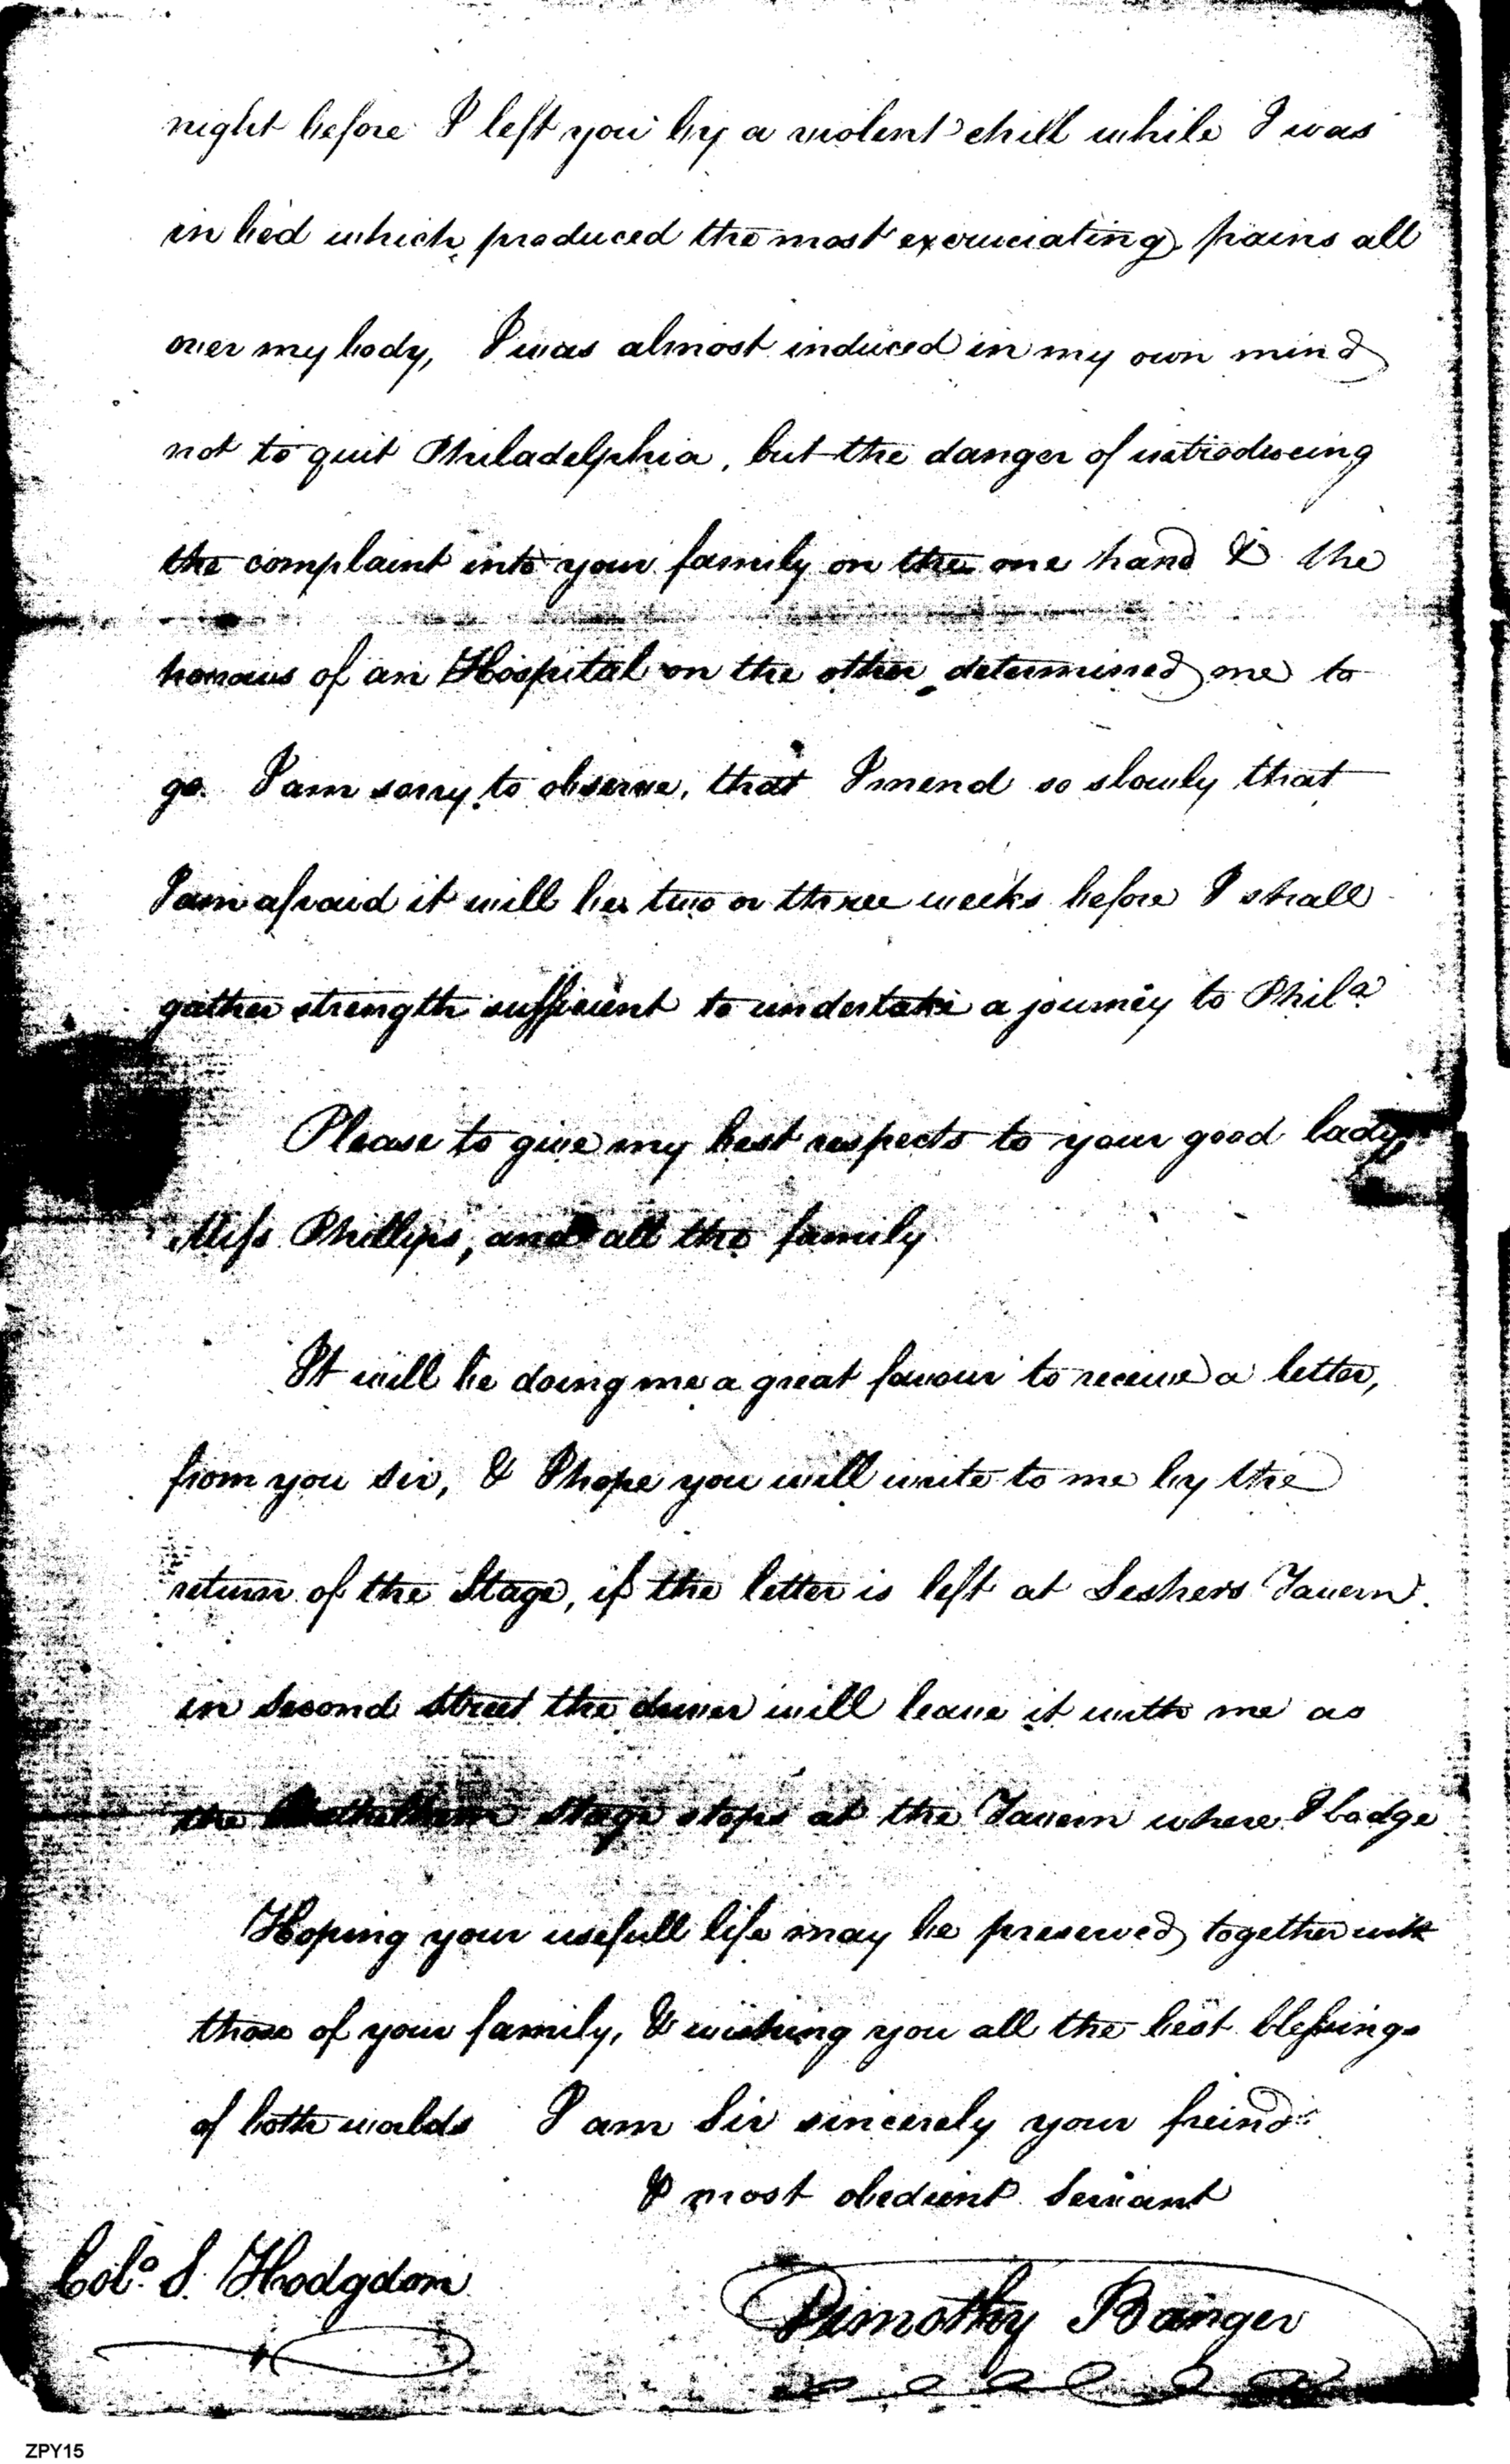 night before I left you by a violent chill while I was
in bed which produced the most excruciating pains all
over my body, I was almost induced in my own mind
not to quit Philadelphia, but the danger of introducing
the complaint into your family on the one hand & the
horrours of an Hospital on the other determined me to
go. I am sorry to observe, that I mend so slowly that
I am afraid it will be two or three weeks before I shall
gather strength sufficient to undertake a journey to Phila
Please to give my best respects to your good lady,
Miss Phillips, and all the family
It will be doing me a great favour to receive a letter,
from you Sir, & I hope you will write to me by the
return of the Stage, if the letter is left at Seshers Tavern
in Second Street the driver will leave it with me as
the Bethelhem Stage stops at the Tavern where I lodge
Hoping your usefull life may be preserved together with
those of your family, & wishing you all the best blessings
of both worlds I am Sir sincerely your freind
& most obedient Servant
Colo. S. Hodgdon
Timothy Banger
ZPY15